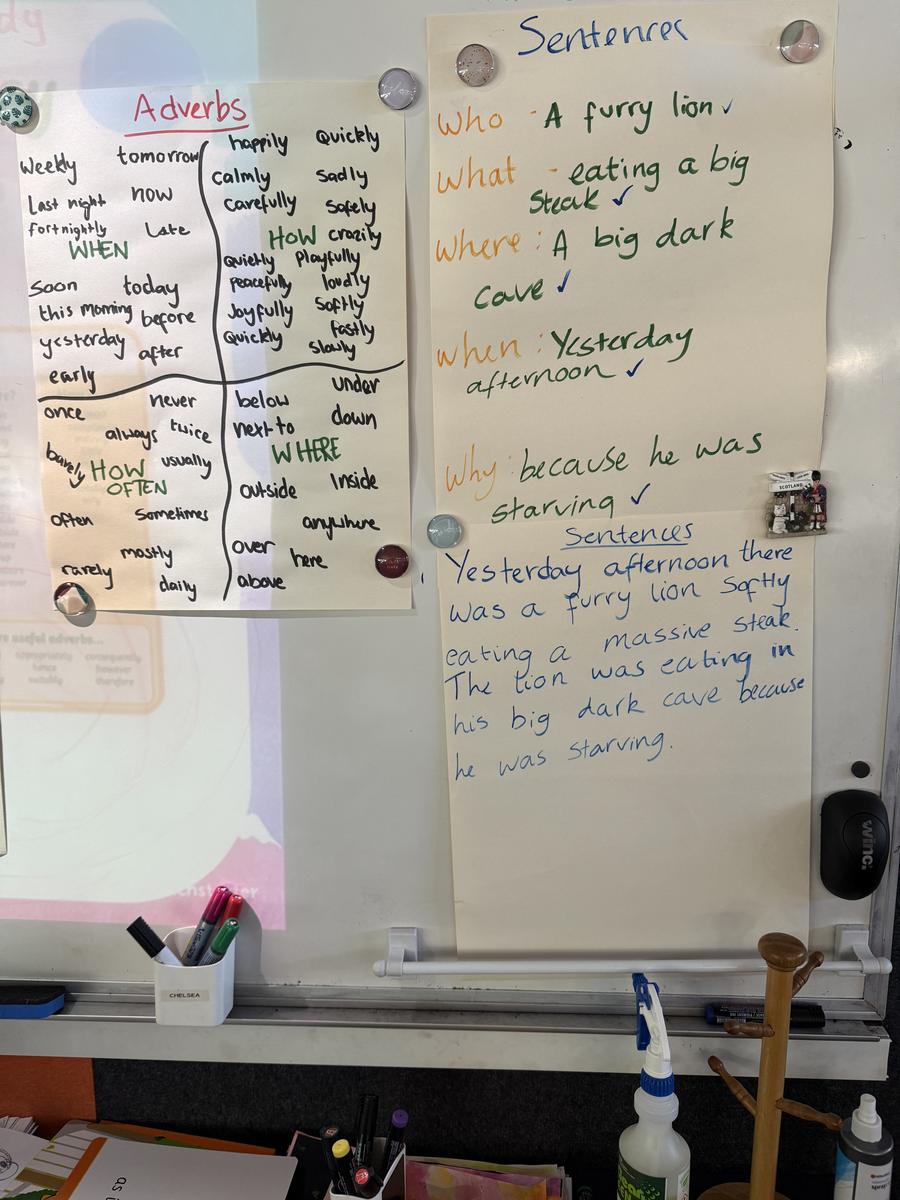 Adverbs
weekly tomorrow
Last night now
fortnightly Late
WHEN
soon today
this morning before
yesterday after
early
happily Quickly
calmly sadly
carefully safely
HOW crazily
quietly playfully
peacefully loudly
Joyfully softly
Quickly fastly
slowly
once never
always twice
barely HOW usually
OFTEN
often sometimes
mostly
rarely daily
below under
next to down
WHERE
outside Inside
anywhere
over here
above
Sentences
Who - A furry lion ✓
What - eating a big
steak ✓
Where : A big dark
cave ✓
when : Yesterday
afternoon ✓
Why : because he was
starving ✓
SCOTLAND
Sentences
Yesterday afternoon there
was a furry lion softly
eating a massive steak.
The lion was eating in
his big dark cave because
he was starving.
e useful adverbs...
appropriately consequently
hence however
suitably therefore
winc.
CHELSEA
as